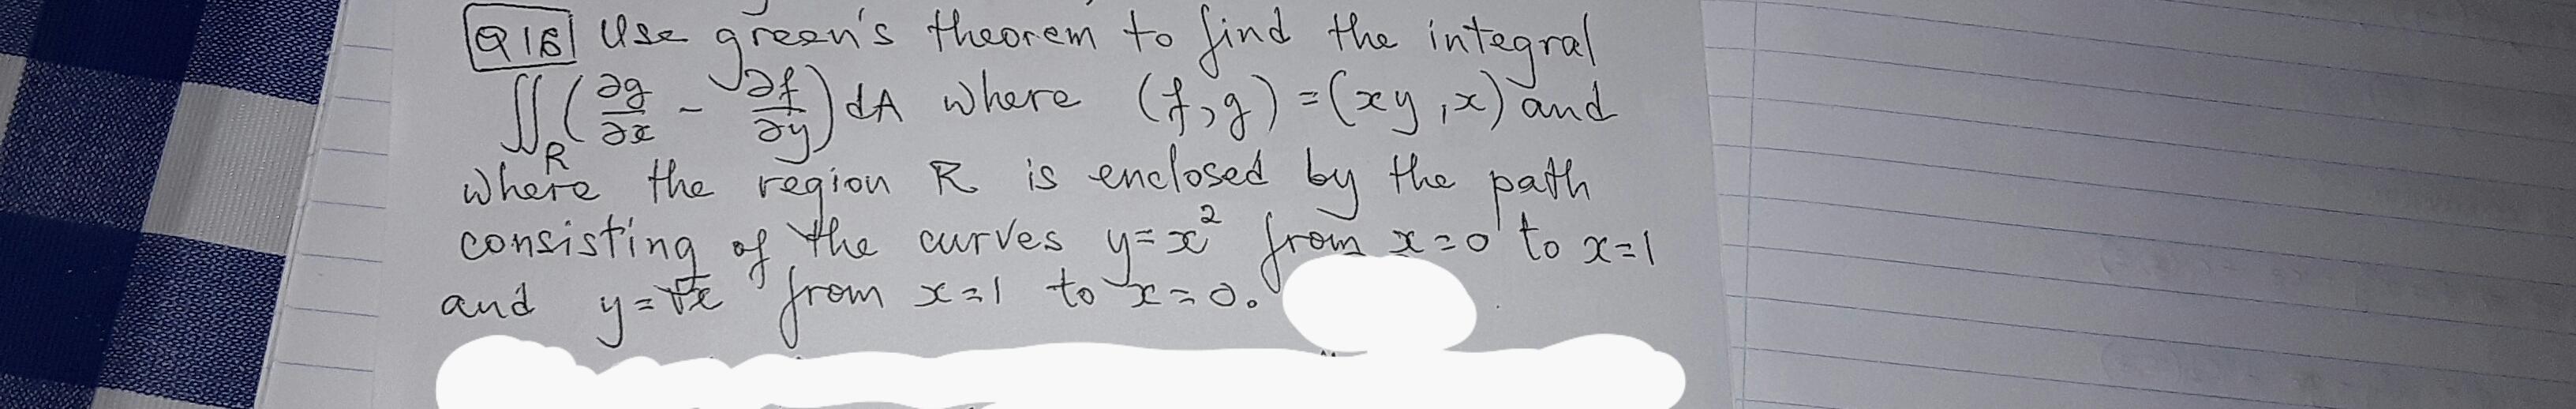 Q16 Use green's theorem to find the integral
∬_R (∂g/∂x - ∂f/∂y) dA where (f,g) = (xy,x) and
where the region R is enclosed by the path
consisting of the curves y=x² from x=0 to x=1
and y=√x from x=1 to x=0.